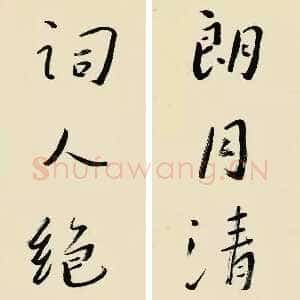 朗月清
词人绝
Shufawang.CN